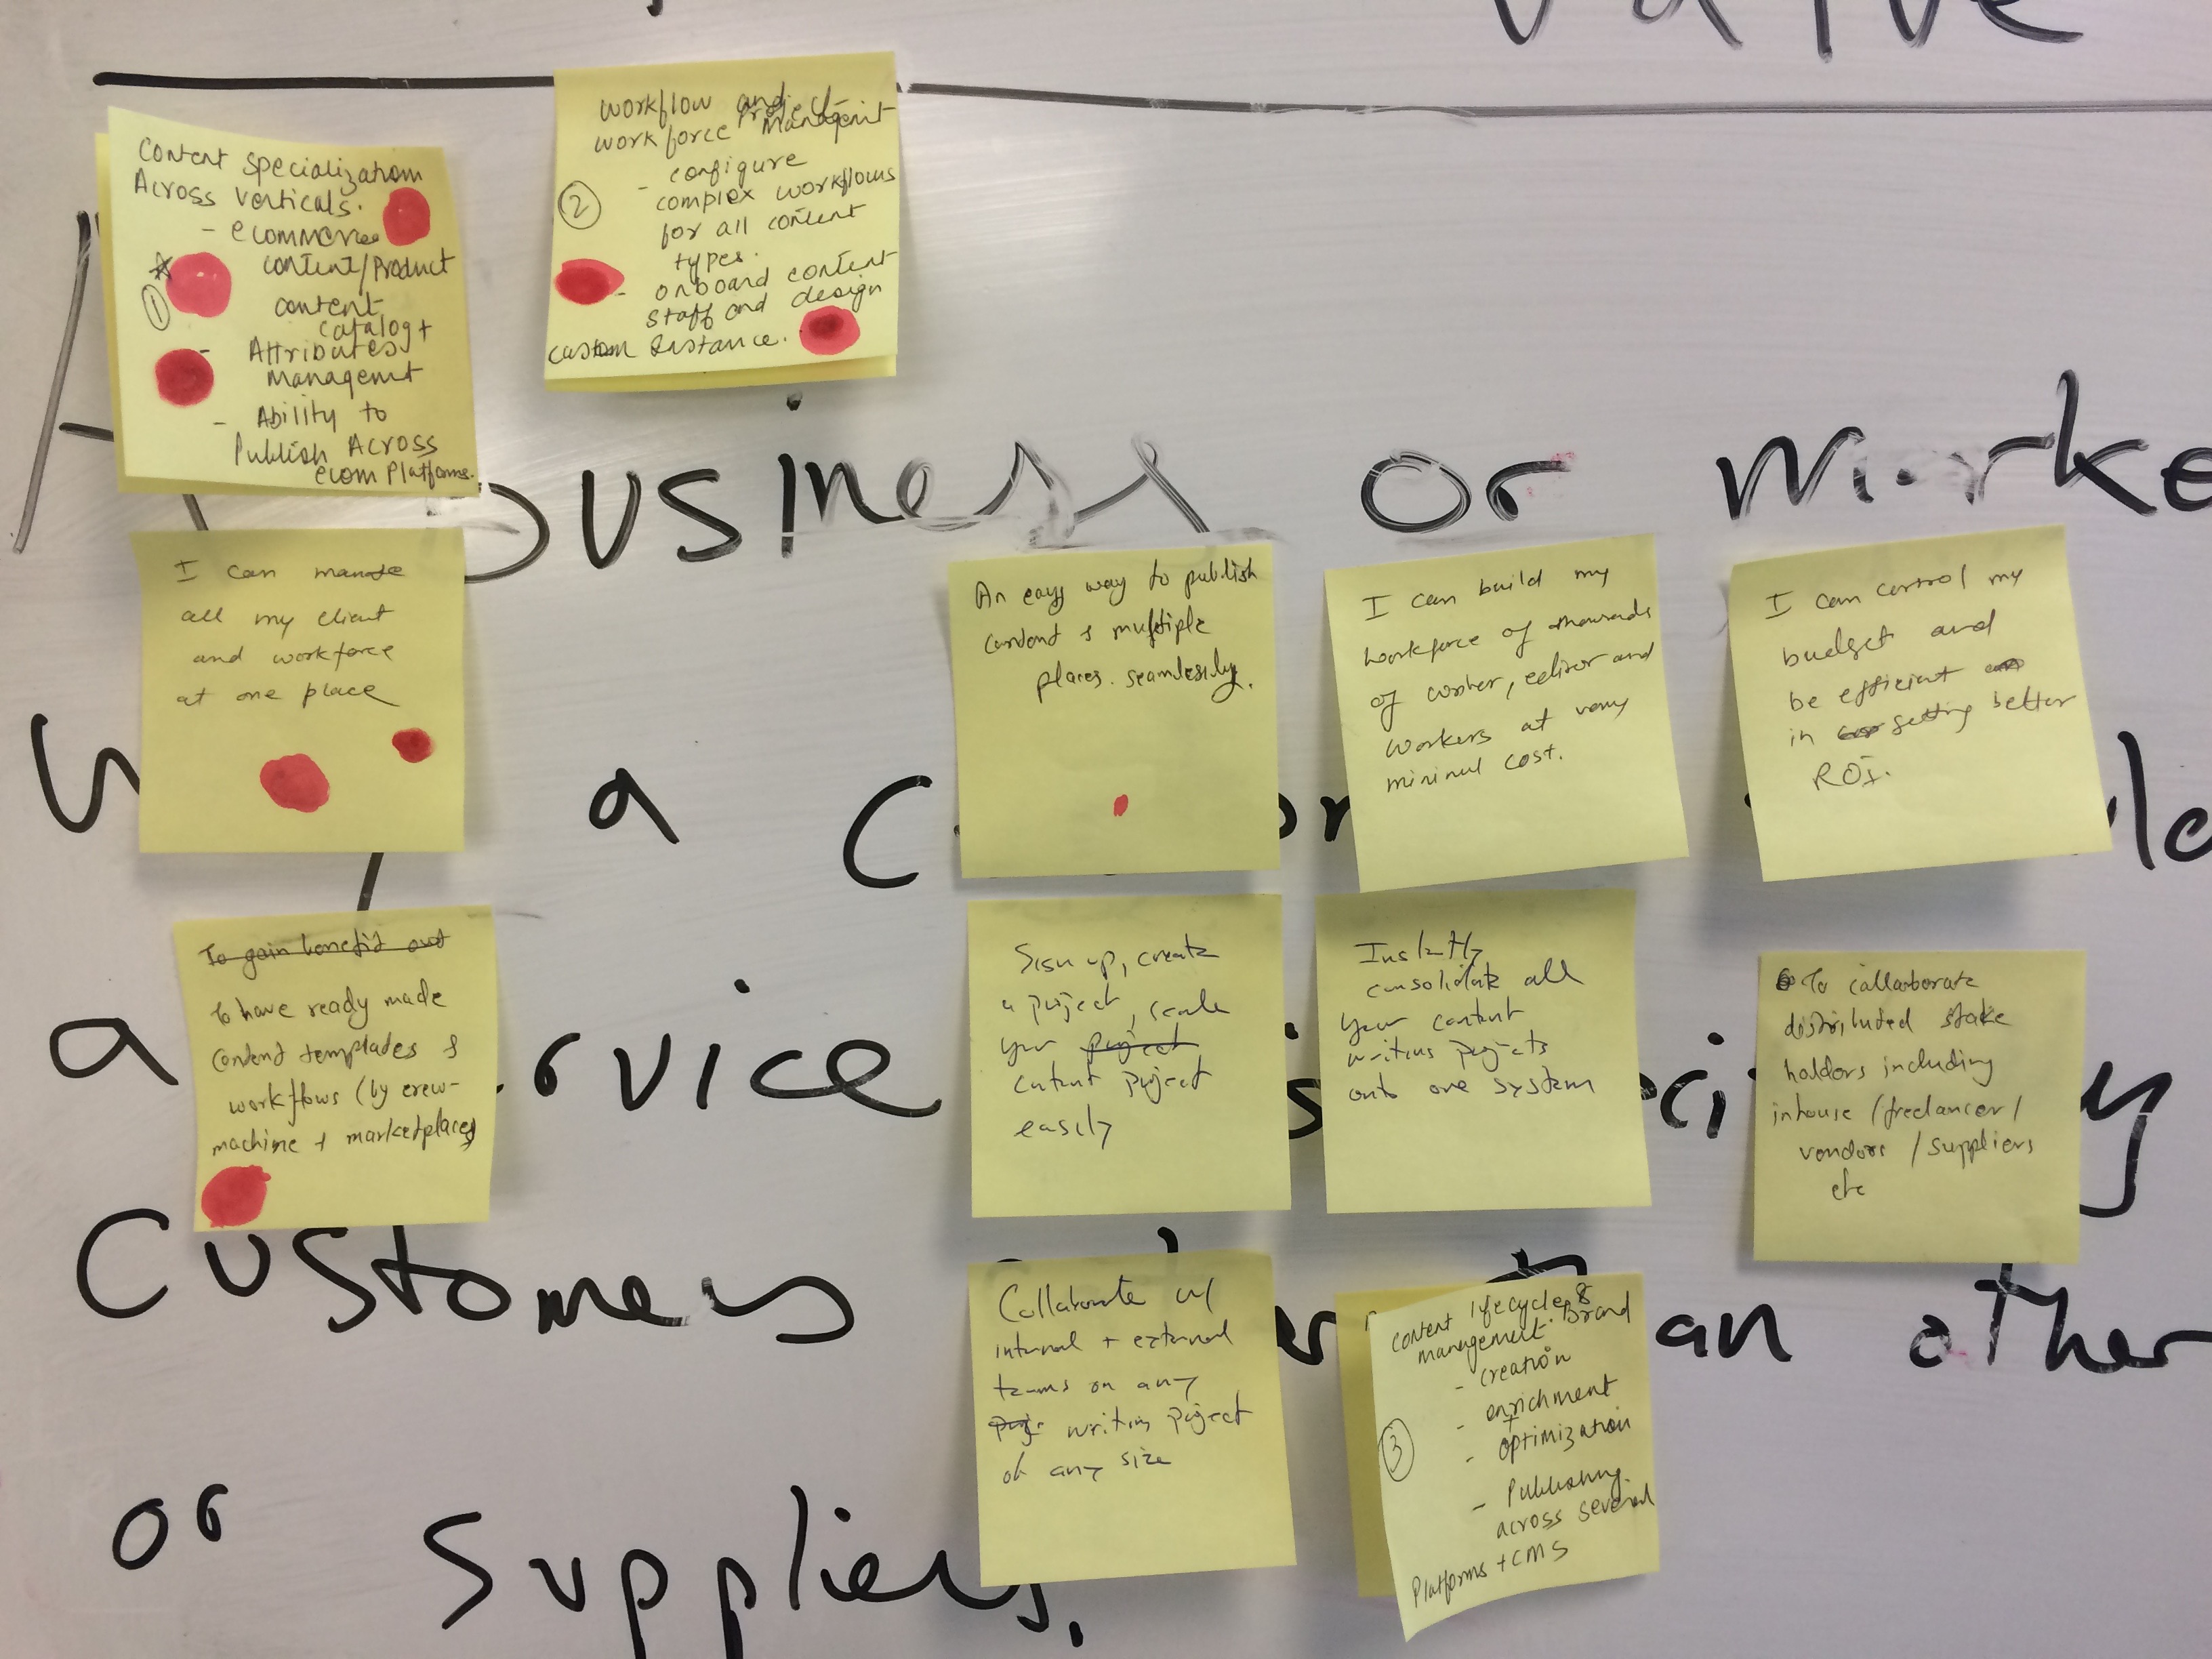 Value
Content Specialization
Across Verticals.
- ecommerce
content/Product
①
content
catalog +
- Attributes
managemt
- Ability to
Publish Across
ecom Platforms.
workflow and
Project
workforce Managemt
②
- configure
complex workflows
for all content
types.
- onboard content
staff and design
custom Instance.
A business or marke
I can manage
all my client
and workforce
at one place
An easy way to publish
content & multiple
places. seamlessly.
I can build my
workforce of thousands
of writer, editor and
workers at very
minimul cost.
I can control my
budget and
be efficient
in getting better
ROI.
a
To gain benefit out
To have ready made
content templates &
workflows (by crew-
machine + marketplaces)
Sign up, create
a project, scale
your project
content project
easily
Instantly
consolidate all
your content
writing projects
onto one system
To collaborate
distributed stake
holders including
inhouse / freelancer /
vendors / suppliers
etc
a
Customers
an other
Collaborate w/
internal + external
teams on any
proj. writing project
of any size
content lifecycle &
Brand
management.
- creation
- enrichment
+
- optimization
③
- Publishing
across several
Platforms + CMS
or Suppliers.